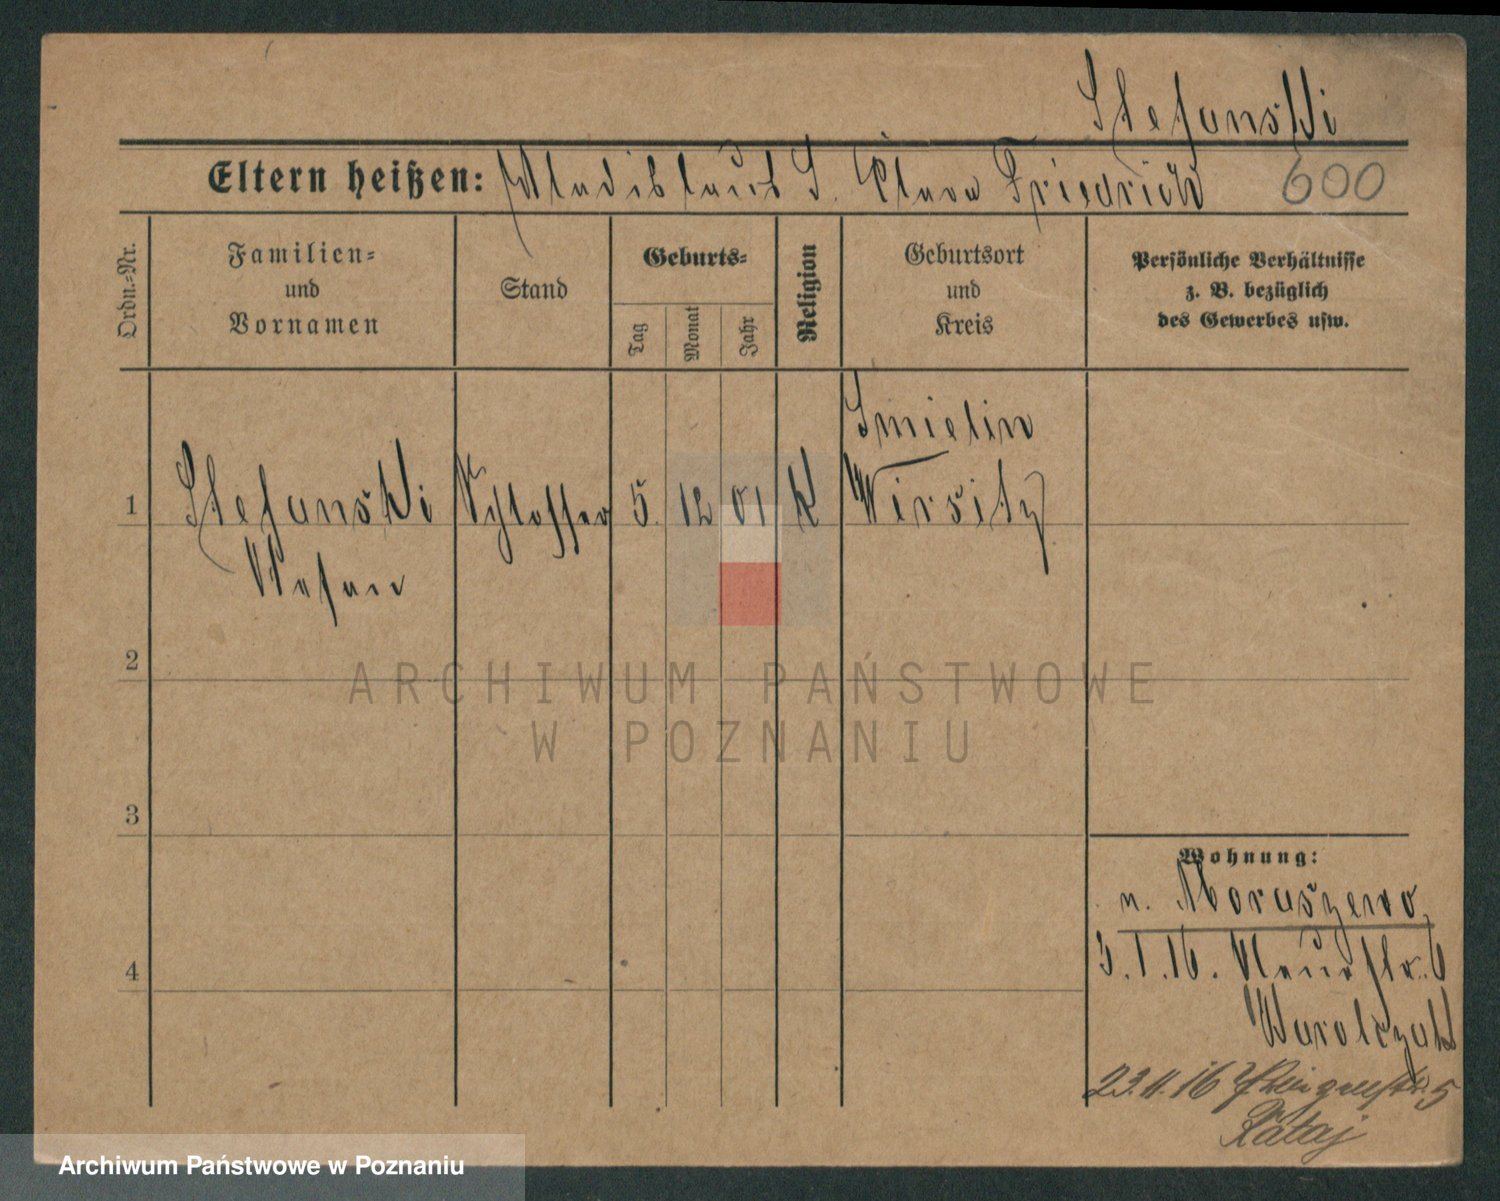 Stefanski
Eltern heißen: Wladislaus S. Clara Friedrich 600
Ordn.-Nr.
Familien-
und
Vornamen
Stand
Geburts-
Tag
Monat
Jahr
Religion
Geburtsort
und
Kreis
Persönliche Verhältnisse
z. B. bezüglich
des Gewerbes usw.
Smielin
1 Stefanski Schlosser 5. 12 01 k Wirsitz
Stefan
2
3
4
Wohnung:
n. Moraszewo
3.1.16. Neuestr. 6
Warolczak
23.11.16 5
Rataj
ARCHIWUM PAŃSTWOWE
W POZNANIU
Archiwum Państwowe w Poznaniu